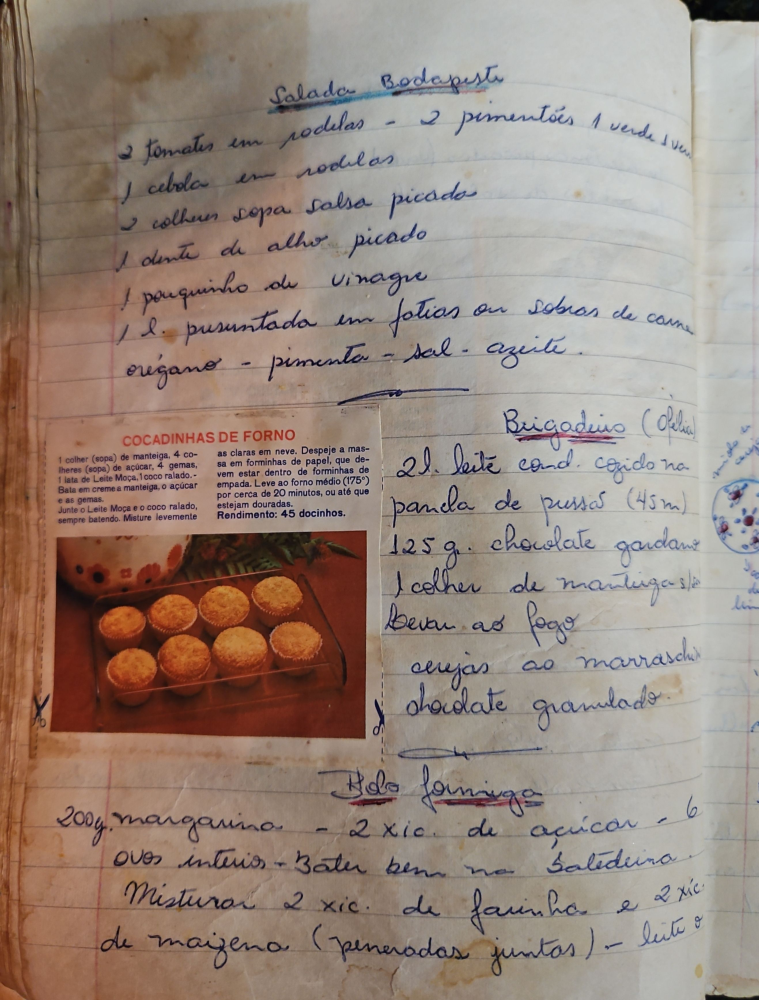 Salada Bodapeste
2 tomates em rodelas - 2 pimentões 1 verde 1 verm
1 cebola em rodelas
2 colheres sopa salsa picada
1 dente de alho picado
1 pouquinho de vinagre
1 l. presuntada em fatias ou sobras de carne
orégano - pimenta - sal - azeite.
COCADINHAS DE FORNO
1 colher (sopa) de manteiga, 4 co-
lheres (sopa) de açúcar, 4 gemas,
1 lata de Leite Moça, 1 coco ralado.
Bata em creme a manteiga, o açúcar
e as gemas.
Junte o Leite Moça e o coco ralado,
sempre batendo. Misture levemente
as claras em neve. Despeje a mas-
sa em forminhas de papel, que de-
vem estar dentro de forminhas de
empada. Leve ao forno médio (175°)
por cerca de 20 minutos, ou até que
estejam douradas.
Rendimento: 45 docinhos.
Brigadeiro (Ofélia)
2 l. leite cond. cozido na
panela de pressão (45m)
125 g. chocolate gardano
1 colher de manteiga s/
Levar ao fogo
cerejas ao marraschi
chocolate granulado.
Bolo formiga
200g. margarina - 2 xic. de açúcar - 6
ovos inteiros - Bater bem na batedeira.
Misturar 2 xic. de farinha e 2 xic.
de maizena (peneradas juntas) - leite o